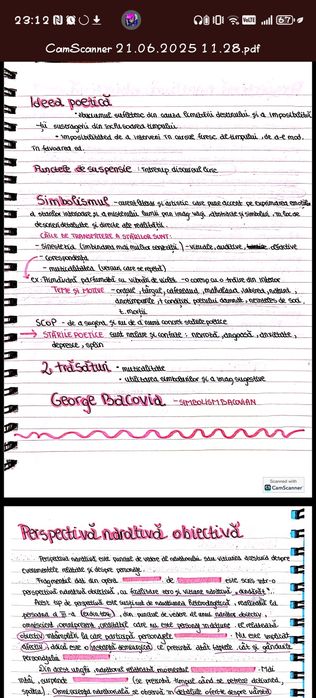 23:12
67
CamScanner 21.06.2025 11.28.pdf
Ideea poetică
• zbuciumul sufletesc din cauza limitării destinului și a imposibilită-
ții sustragerii din închisoarea timpului
• imposibilitatea de a interveni în cursul firesc al timpului, de a-l mod.
în favoarea ei.
Punctele de suspensie : întrerup discursul liric
Simbolismul - curent literar și artistic care pune accent pe exprimarea emoțiilor
a stărilor interioare și a misterului lumii prin imag. vagi, abstracte și simboluri, în loc de
descrieri detaliate și directe ale realității
CĂILE DE TRANSMITERE A STĂRILOR SUNT:
- Sinestezia (îmbinarea mai multor senzații) - vizuale, auditive, olfactive
- corespondența
- muzicalitatea (versuri care se repetă)
ex: Primăvară parfumată cu vibrări de violete → coresp cu o trăire din interior
TEME ȘI MOTIVE - orașul, târgul, cafeneaua, mahalaua, iubirea, natura,
anotimpurile, t. condiției poetului damnat, neînțeles de soc,
t. morții
SCOP - de a sugera, și nu de a numi concret stările poetice
→ STĂRILE POETICE sunt neclare și confuze : nevroză, angoasă, anxietate,
depresie, spleen
2 trăsături • muzicalitate
• utilizarea simbolurilor și a imag sugestive
George Bacovia - SIMBOLISM BACOVIAN
Scanned with
CamScanner
Perspectivă narativă obiectivă
Perspectiva narativă este punctul de vedere al naratorului sau viziunea acestuia despre
evenimentele relatate și despre personaje.
Fragmentul dat din opera de este scris într-o
perspectivă narativă obiectivă, cu focalizare zero și viziune narativă „dindărăt”.
Acest tip de perspectivă este susținut de narațiunea heterodiegetică, realizată la
persoana a III-a (        ), din punctul de vedere al unui narator obiectiv,
omniscient, omniprezent, creditabil, care nu este personaj în acțiune, el relatează
obiectiv întâmplări la care participă personajele . Nu este implicat
afectiv, dacă este o instanță demiurgică, ce prezintă atât faptele, cât și gândurile
personajului .
Din acest unghi, naratorul relatează momentul . Mai
întâi, surprinde (se prezintă timpul când se petrece acțiunea,
spațiul). Omnisciența naratorului se observă în detaliile oferite despre